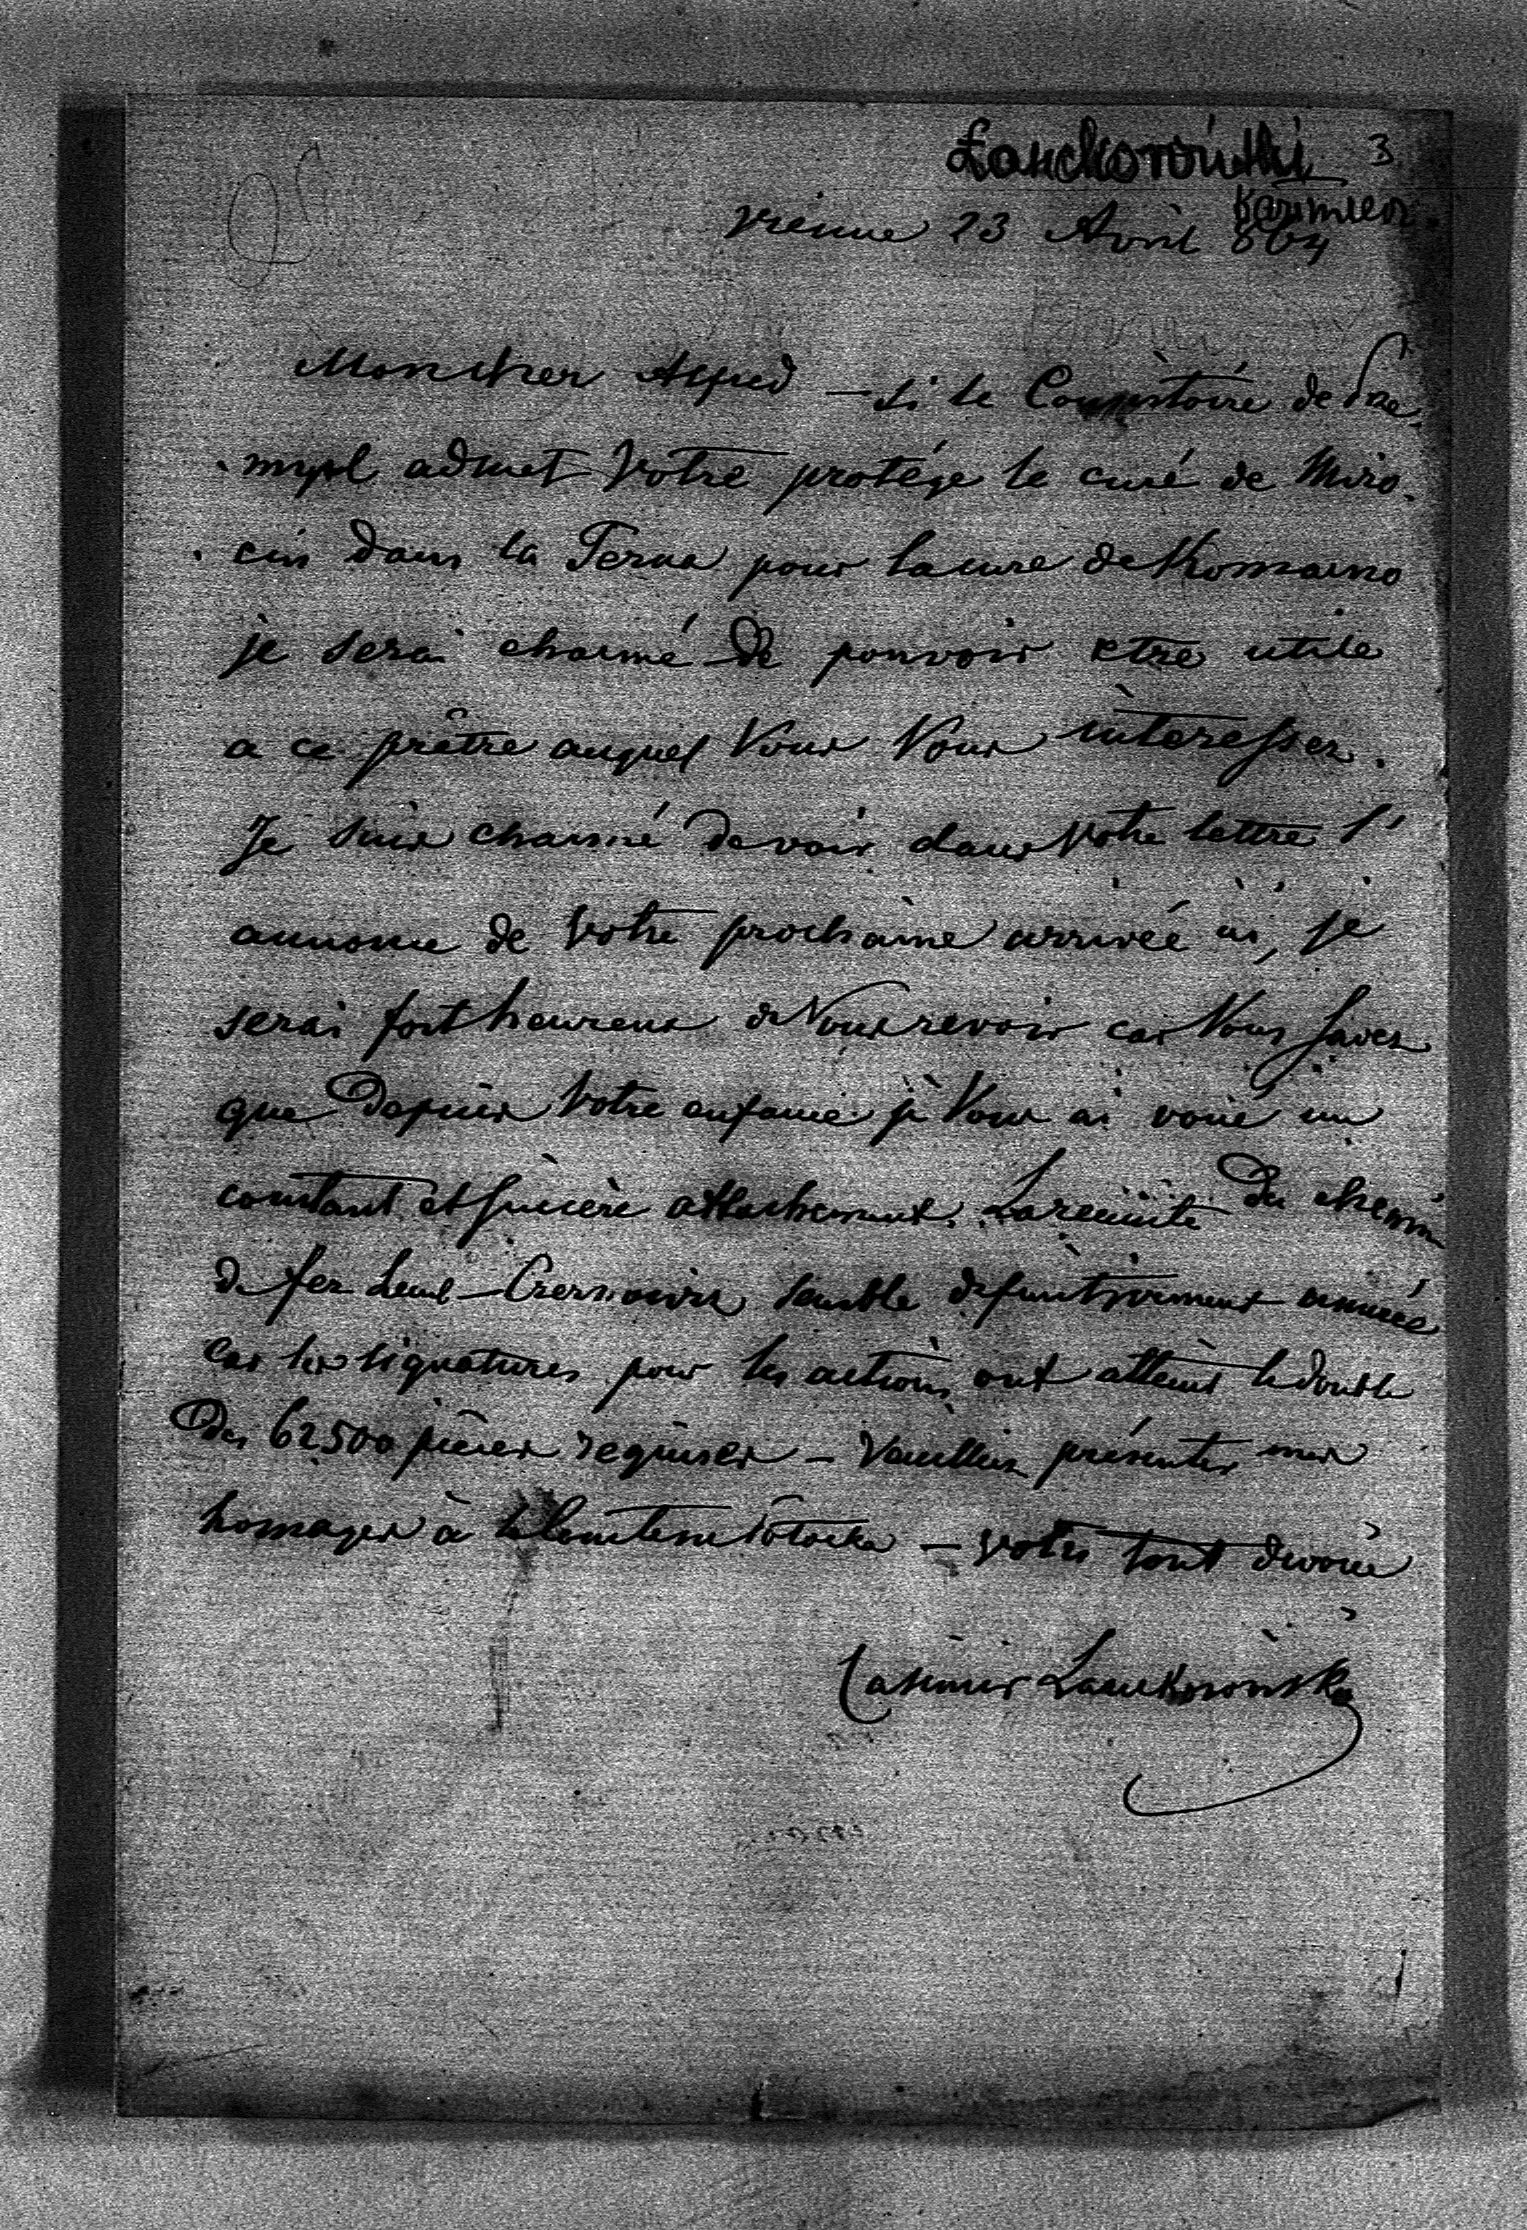 Lanckoroński 3
Kazimierz.
Vienne 23 Avril 864
Mon cher Alfred – si le Consistoire de Prze
mysl admet Votre protégé le curé de Miro
cin dans la Terna pour la cure de Komarno
je serai charmé de pouvoir etre utile
a ce prêtre auquel Vous Vous interessez.
Je suis charmé de voir dans Votre lettre l'
annonce de Votre prochaine arrivée ici, je
serai fort heureux de Vous revoir car Vous savez
que depuis Votre enfance je Vous ai voué un
constant et sincère attachement. La reussite du chemin
de fer Lemb–Czernowitz semble definitivement assurée
car les signatures pour les actions ont atteint le double
des 62500 pièces requises – Veuillez présenter mes
homages à la Comtesse Potocka – Votre tout devoué
Casimir Lanckoroński